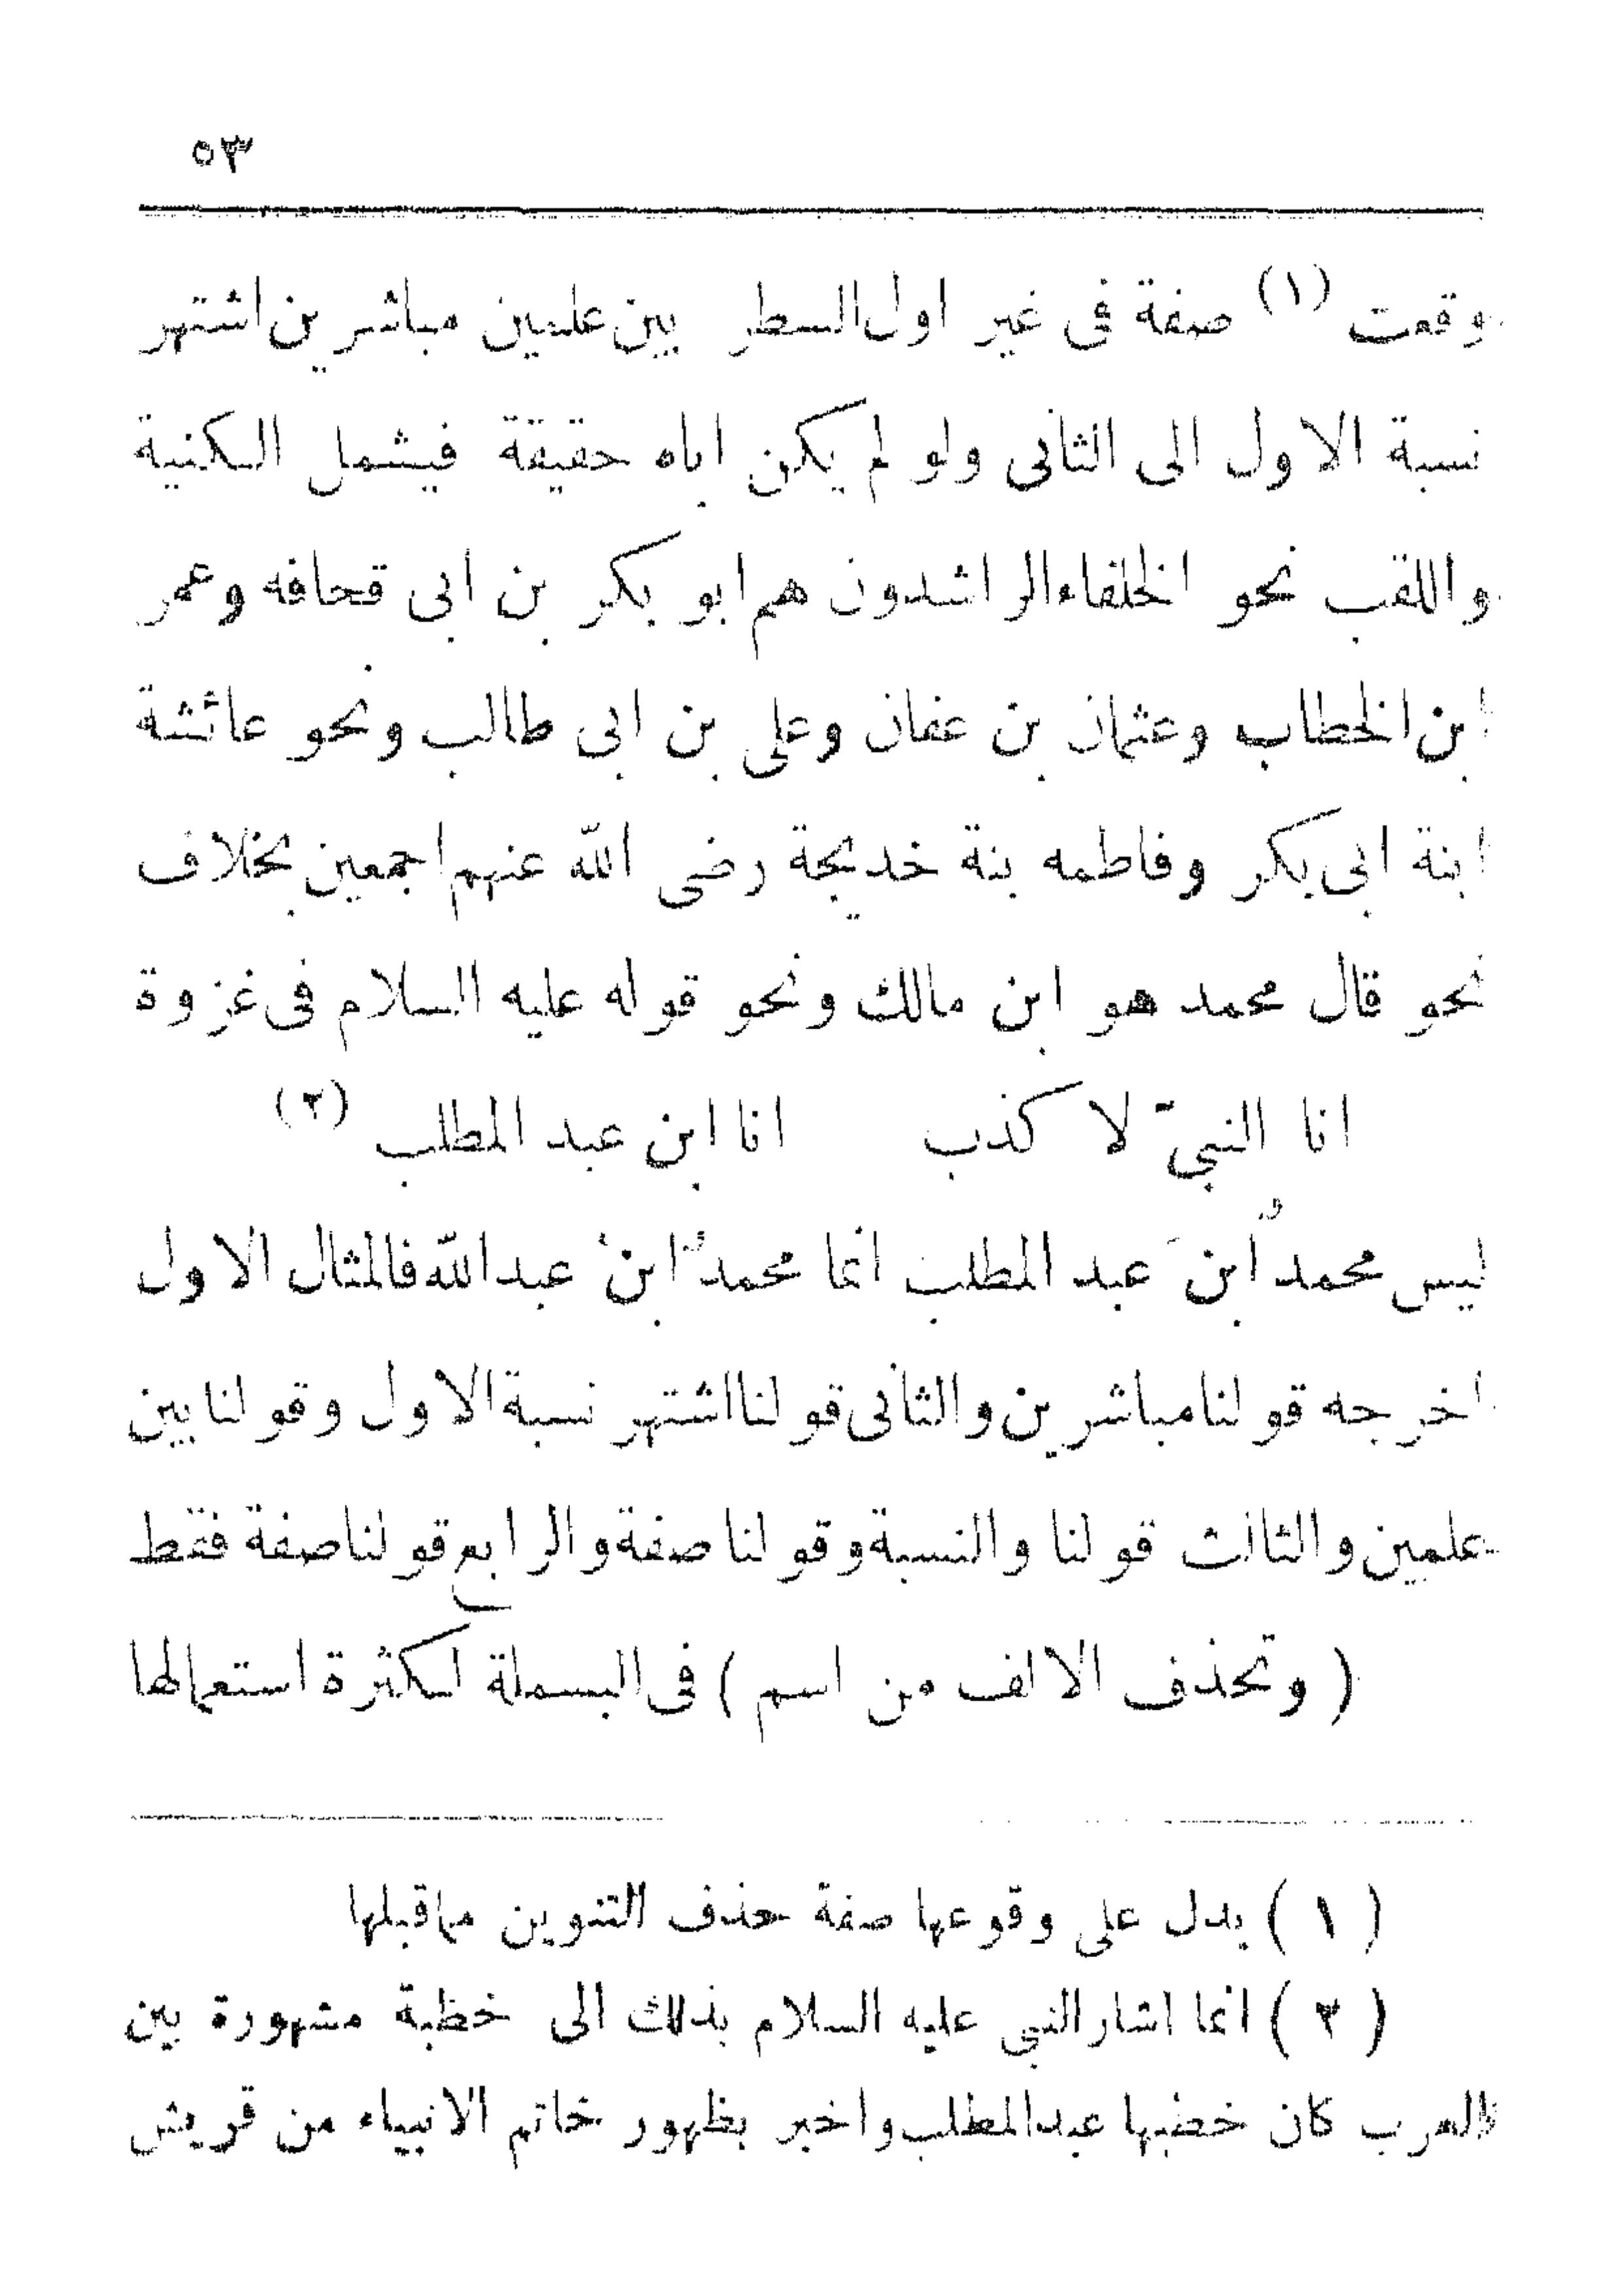 ٥٣
وقعت (١) صفة فى غير اول السطر بين علمين مباشرين اشتهر
نسبة الاول الى الثانى ولو لم يكن اباه حقيقة فيشمل الكنية
واللقب نحو الخلفاء الراشدون هم ابو بكر بن ابى قحافه وعمر
ابن الخطاب وعثمان بن عفان وعلى بن ابى طالب ونحو عائشة
ابنة ابى بكر وفاطمه بنة خديجة رضى الله عنهم اجمعين بخلاف
نحو قال محمد هو ابن مالك ونحو قوله عليه السلام فى غزوة
انا النبىّ لا كذب انا ابن عبد المطلب (٢)
ليس محمدٌ ابنَ عبد المطلب انما محمدٌ ابنُ عبد الله فالمثال الاول
اخرجه قولنا مباشرين والثانى قولنا اشتهر نسبة الاول وقولنا بين
علمين والثالث قولنا والنسبة وقولنا صفة والرابع قولنا صفة فقط
( وتحذف الالف من اسم ) فى البسملة لكثرة استعمالها
( ١ ) يدل على وقوعها صفة حذف التنوين مما قبلها
( ٢ ) انما اشار النبي عليه السلام بذلك الى خطبة مشهورة بين
العرب كان خطبها عبد المطلب واخبر بظهور خاتم الانبياء من قريش